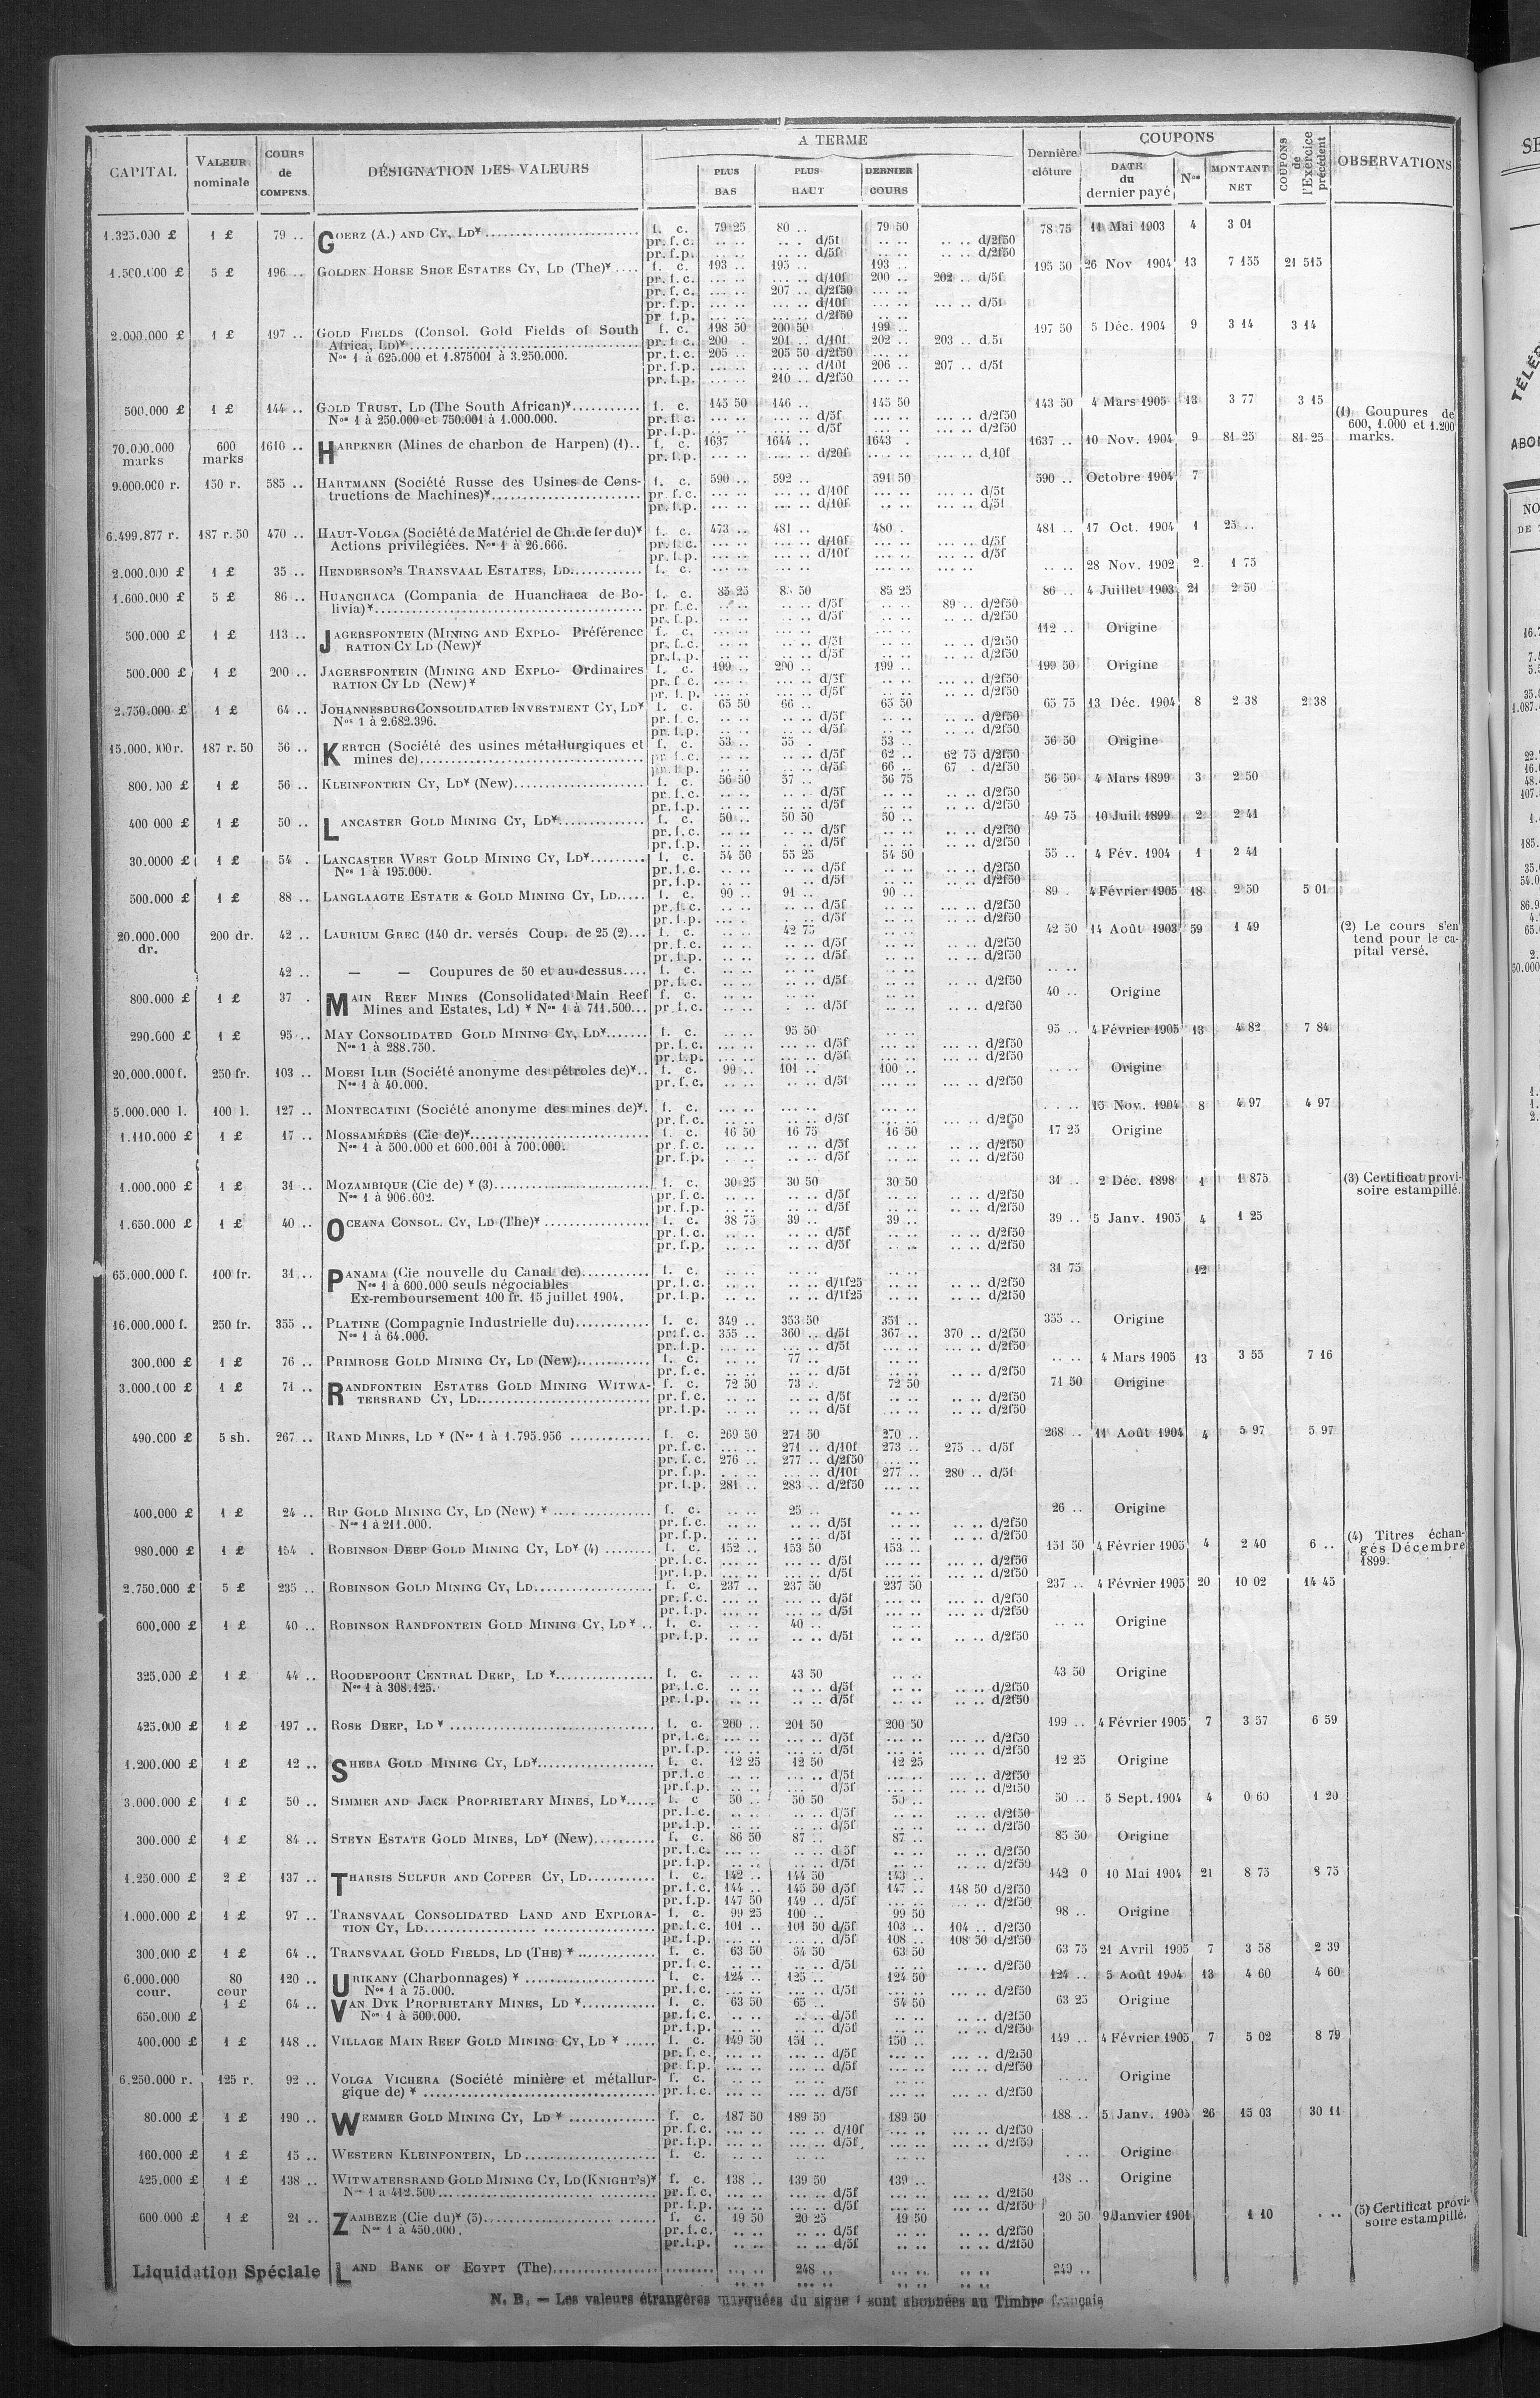 CAPITAL VALEUR nominale COURS de COMPENS. DÉSIGNATION DES VALEURS A TERME PLUS BAS PLUS HAUT DERNIER COURS Dernière clôture COUPONS DATE du dernier payé Nos MONTANT NET COUPONS de l'Exercice précédent OBSERVATIONS
1.325.000 £ 1 £ 79 .. GOERZ (A.) AND CY, LD* f. c. 79 25 80 .. 79 50 78 75 11 Mai 1903 4 3 01
pr. f. c. .. .. .. .. d/5f .. .. .. .. d/2f50
pr. f. p. .. .. .. .. d/5f .. .. .. .. d/2f50
1.500.000 £ 5 £ 196 .. GOLDEN HORSE SHOE ESTATES CY, LD (The)* f. c. 193 .. 195 .. 193 .. 195 50 26 Nov 1904 13 7 155 21 515
pr. f. c. ... .. ... .. d/10f 200 .. 202 .. d/5f
pr. f. c. ... .. 207 .. d/2f50 ... ..
pr. f. p. ... .. ... .. d/10f ... .. ... .. d/5f
pr. f. p. ... .. ... .. d/2f50 ... ..
2.000.000 £ 1 £ 197 .. GOLD FIELDS (Consol. Gold Fields of South f. c. 198 50 200 50 199 .. 197 50 5 Déc. 1904 9 3 14 3 14
Africa, LD)* pr. f. c. 200 . 201 .. d/10f 202 .. 203 .. d.5f
Nos 1 à 625.000 et 1.875001 à 3.250.000. pr. f. c. 205 .. 205 50 d/2f50 ... ..
pr. f. p. ... .. ... .. d/10f 206 .. 207 .. d/5f
pr. f. p. ... .. 210 .. d/2f50 ... ..
500.000 £ 1 £ 144 .. GOLD TRUST, LD (The South African)* f. c. 145 50 146 .. 145 50 143 50 4 Mars 1905 13 3 77 3 15 (1) Coupures de
Nos 1 à 250.000 et 750.001 à 1.000.000. pr. f. c. ... .. ... .. d/5f ... .. ... .. d/2f50 600, 1.000 et 1.200
pr. f. p. ... .. ... .. d/5f ... .. ... .. d/2f50 marks.
70.000.000 marks 600 marks 1610 .. HARPENER (Mines de charbon de Harpen) (1).. f. c. 1637 1644 .. 1643 . 1637 .. 10 Nov. 1904 9 81 25 81 25
pr. f. p. ... .. ... .. d/20f ... .. ... .. d.10f
9.000.000 r. 150 r. 585 .. HARTMANN (Société Russe des Usines de Cons- f. c. 590 .. 592 .. 591 50 590 .. Octobre 1904 7
tructions de Machines)* pr. f. c. ... .. ... .. d/10f ... .. ... .. d/5f
pr. f. p. ... .. ... .. d/10f ... .. ... .. d/5f
6.499.877 r. 187 r. 50 470 .. HAUT-VOLGA (Société de Matériel de Ch. de fer du)* f. c. 473 .. 481 .. 480 . 481 .. 17 Oct. 1904 1 25 ..
Actions privilégiées. Nos 1 à 26.666. pr. f. c. ... .. ... .. d/10f ... .. ... .. d/5f
pr. f. p. ... .. ... .. d/10f ... .. ... .. d/5f
2.000.000 £ 1 £ 35 .. HENDERSON'S TRANSVAAL ESTATES, LD. f. c. ... .. ... .. ... .. .. .. 28 Nov. 1902 2 1 75
1.600.000 £ 5 £ 86 .. HUANCHACA (Compania de Huanchaca de Bo- f. c. 85 25 50 85 25 86 .. 4 Juillet 1903 21 2 50
livia)* pr. f. c. .. .. .. .. d/5f .. .. 89 .. d/2f50
pr. f. p. .. .. .. .. d/5f .. .. .. .. d/2f50
500.000 £ 1 £ 113 .. JAGERSFONTEIN (MINING AND EXPLO- Préférence f. c. ... .. ... .. ... .. 112 .. Origine
RATION CY LD (New)* pr. f. c. .. .. .. .. d/5f .. .. .. .. d/2f50
pr. f. p. .. .. .. .. d/5f .. .. .. .. d/2f50
500.000 £ 1 £ 200 .. JAGERSFONTEIN (MINING AND EXPLO- Ordinaires f. c. 199 .. 200 .. 199 .. 199 50 Origine
RATION CY LD (New)* pr. f. c. ... . ... .. d/5f ... .. ... .. d/2f50
pr. f. p. ... .. ... .. d/5f .. .. ... .. d/2f50
2.750.000 £ 1 £ 64 .. JOHANNESBURG CONSOLIDATED INVESTMENT CY, LD* f. c. 65 50 66 .. 65 50 65 75 13 Déc. 1904 8 2 38 2 38
Nos 1 à 2.682.396. pr. f. c. .. .. .. .. d/5f .. .. .. .. d/2f50
pr. f. p. .. .. .. .. d/5f .. .. .. .. d/2f50
15.000.000 r. 187 r. 50 56 .. KERTCH (Société des usines métallurgiques et f. c. 53 .. 55 . 53 .. 56 50 Origine
mines de) pr. f. c. .. .. .. .. d/5f 62 .. 62 75 d/2f50
pr. f. p. .. .. .. .. d/5f 66 .. 67 . d/2f50
800.000 £ 1 £ 56 .. KLEINFONTEIN CY, LD* (New) f. c. 56 50 57 .. 56 75 56 50 4 Mars 1899 3 2 50
pr. f. c. .. .. .. .. d/5f .. .. .. .. d/2f50
pr. f. p. .. .. .. .. d/5f .. .. .. .. d/2f50
400 000 £ 1 £ 50 .. LANCASTER GOLD MINING CY, LD* f. c. 50 .. 50 50 50 .. 49 75 10 Juil. 1899 2 2 41
pr. f. c. .. .. .. .. d/5f .. .. .. .. d/2f50
pr. f. p. .. .. .. .. d/5f .. .. .. .. d/2f50
30.0000 £ 1 £ 54 . LANCASTER WEST GOLD MINING CY, LD* f. c. 54 50 55 25 54 50 55 .. 4 Fév. 1904 1 2 41
Nos 1 à 195.000. pr. f. c. .. .. .. .. d/5f .. .. .. .. d/2f50
pr. f. p. .. .. .. .. d/5f .. .. .. .. d/2f50
500.000 £ 1 £ 88 .. LANGLAAGTE ESTATE & GOLD MINING CY, LD f. c. 90 .. 91 .. 90 .. 89 . 4 Février 1905 18 2 50 5 01
pr. f. c. .. .. .. .. d/5f .. .. .. .. d/2f50
pr. f. p. .. .. .. .. d/5f .. .. .. .. d/2f50
20.000.000 dr. 200 dr. 42 .. LAURIUM GREC (140 dr. versés Coup. de 25 (2) f. c. .. .. 42 75 .. .. 42 50 14 Août 1903 59 1 49 (2) Le cours s'en
pr. f. c. .. .. .. .. d/5f .. .. .. .. d/2f50 tend pour le ca-
pr. f. p. .. .. .. .. d/5f .. .. .. .. d/2f50 pital versé.
42 .. — — Coupures de 50 et au-dessus f. c. .. .. .. .. .. .. .. ..
pr. f. c. .. .. .. .. d/5f .. .. .. .. d/2f50
800.000 £ 1 £ 37 . MAIN REEF MINES (Consolidated Main Reef f. c. .. .. .. .. .. .. 40 .. Origine
Mines and Estates, Ld) * Nos 1 à 711.500 pr. f. c. .. .. . .. d/5f .. .. .. .. d/2f50
290.000 £ 1 £ 95 .. MAY CONSOLIDATED GOLD MINING CY, LD* f. c. .. .. 95 50 .. .. 95 .. 4 Février 1905 13 4 82 7 84
Nos 1 à 288.750. pr. f. c. ... .. ... .. d/5f ... .. ... .. d/2f50
pr. f. p. ... .. ... .. d/5f ... .. ... .. d/2f50
20.000.000 f. 250 fr. 103 .. MOESI ILIR (Société anonyme des pétroles de)* f. c. 99 .. 101 .. 100 .. .. .. Origine
Nos 1 à 40.000. pr. f. c. .. .. .. .. d/5f .. .. ... .. d/2f50
5.000.000 l. 100 l. 127 .. MONTECATINI (Société anonyme des mines de)* f. c. ... .. ... .. ... .. . . .. 15 Nov. 1904 8 4 97 4 97
pr. f. c. .. .. .. .. d/5f .. .. ... .. d/2f50
1.110.000 £ 1 £ 17 .. MOSSAMÉDÈS (Cie de)* f. c. 16 50 16 75 16 50 17 25 Origine
Nos 1 à 500.000 et 600.001 à 700.000. pr. f. c. .. .. .. .. d/5f .. .. .. .. d/2f50
pr. f. p. . .. .. .. d/5f .. .. .. .. d/2f50
1.000.000 £ 1 £ 31 .. MOZAMBIQUE (Cie de) * (3) f. c. 30 25 30 50 30 50 31 .. 2 Déc. 1898 1 1 875 (3) Certificat provi-
Nos 1 à 906.602. pr. f. c. .. .. .. .. d/5f .. .. .. .. d/2f50 soire estampillé.
pr. f. p. .. .. .. .. d/5f .. .. .. .. d/2f50
1.650.000 £ 1 £ 40 .. OCEANA CONSOL. CY, LD (The)* f. c. 38 75 39 .. 39 .. 39 .. 5 Janv. 1905 4 1 25
pr. f. c. .. .. .. .. d/5f .. .. .. .. d/2f50
pr. f. p. .. .. .. .. d/5f .. .. .. .. d/2f50
65.000.000 f. 100 fr. 31 .. PANAMA (Cie nouvelle du Canal de) f. c. .. .. .. .. .. .. 31 75 12
Nos 1 à 600.000 seuls négociables pr. f. c. .. .. .. .. d/1f25 .. .. .. .. d/2f50
Ex-remboursement 100 fr. 15 juillet 1904. pr. f. p. .. .. .. .. d/1f25 .. .. .. .. d/2f50
16.000.000 f. 250 fr. 355 .. PLATINE (Compagnie Industrielle du) f. c. 349 .. 353 50 351 .. 355 .. Origine
Nos 1 à 64.000. pr. f. c. 355 .. 360 .. d/5f 367 .. 370 .. d/2f50
pr. f. p. ... .. ... .. d/5f ... .. ... .. d/2f50
300.000 £ 1 £ 76 .. PRIMROSE GOLD MINING CY, LD (New) f. c. .. .. 77 .. .. .. .. .. 4 Mars 1905 13 3 55 7 16
pr. f. c. .. .. .. .. d/5f .. .. .. .. d/2f50
3.000.000 £ 1 £ 71 .. RANDFONTEIN ESTATES GOLD MINING WITWA- f. c. 72 50 73 .. 72 50 71 50 Origine
TERSRAND CY, LD. pr. f. c. .. .. .. .. d/5f .. .. .. .. d/2f50
pr. f. p. .. .. .. .. d/5f .. .. .. .. d/2f50
490.000 £ 5 sh. 267 .. RAND MINES, LD * (Nos 1 à 1.795.956 f. c. 269 50 271 50 270 .. 268 .. 11 Août 1904 4 5 97 5 97
pr. f. c. ... .. 271 .. d/10f 273 .. 275 .. d/5f
pr. f. c. 276 .. 277 .. d/2f50 ... ..
pr. f. p. ... .. ... .. d/10f 277 .. 280 .. d/5f
pr. f. p. 281 .. 283 .. d/2f50 ... ..
400.000 £ 1 £ 24 .. RIP GOLD MINING CY, LD (New) * f. c. .. .. 25 .. .. .. 26 .. Origine
Nos 1 à 211.000. pr. f. c. .. .. .. .. d/5f .. .. .. .. d/2f50
pr. f. p. .. .. .. .. d/5f .. .. .. .. d/2f50
980.000 £ 1 £ 154 . ROBINSON DEEP GOLD MINING CY, LD* (4) f. c. 152 .. 153 50 153 .. 151 50 4 Février 1905 4 2 40 6 .. (4) Titres échan-
pr. f. c. ... .. ... .. d/5f ... .. ... .. d/2f50 gés Décembre
pr. f. p. ... .. ... .. d/5f ... .. ... .. d/2f50 1899.
2.750.000 £ 5 £ 235 .. ROBINSON GOLD MINING CY, LD f. c. 237 .. 237 50 237 50 237 .. 4 Février 1905 20 10 02 14 45
pr. f. c. ... .. ... .. d/5f ... .. ... .. d/2f50
pr. f. p. ... .. ... .. d/5f ... .. ... .. d/2f50
600.000 £ 1 £ 40 .. ROBINSON RANDFONTEIN GOLD MINING CY, LD * f. c. .. .. 40 .. .. .. .. .. Origine
pr. f. p. .. .. .. .. d/5f .. .. .. .. d/2f50
325.000 £ 1 £ 44 .. ROODEPOORT CENTRAL DEEP, LD * f. c. .. .. 43 50 .. .. 43 50 Origine
Nos 1 à 308.125. pr. f. c. .. .. .. .. d/5f .. .. .. .. d/2f50
pr. f. p. .. .. .. .. d/5f .. .. .. .. d/2f50
425.000 £ 1 £ 197 .. ROSE DEEP, LD * f. c. 200 .. 201 50 200 50 199 .. 4 Février 1905 7 3 57 6 59
pr. f. c. ... .. ... .. d/5f ... .. ... .. d/2f50
pr. f. p. ... .. ... .. d/5f ... .. ... .. d/2f50
1.200.000 £ 1 £ 12 .. SHEBA GOLD MINING CY, LD* f. c. 12 25 12 50 12 25 12 25 Origine
pr. f. c .. .. ... .. d/5f ... .. ... .. d/2f50
pr. f. p. .. .. ... .. d/5f ... .. ... .. d/2f50
3.000.000 £ 1 £ 50 .. SIMMER AND JACK PROPRIETARY MINES, LD * f. c 50 .. 50 50 50 .. 50 .. 5 Sept. 1904 4 0 60 1 20
pr. f. c. .. .. .. .. d/5f .. .. .. .. d/2f50
pr. f. p. .. .. .. .. d/5f .. .. .. .. d/2f50
300.000 £ 1 £ 84 .. STEYN ESTATE GOLD MINES, LD* (New) f. c. 86 50 87 .. 87 .. 85 50 Origine
pr. f. c. ... .. .. .. d 5f .. .. .. .. d/2f50
pr. f. p. .. .. .. .. d/5f .. .. .. .. d/2f50
1.250.000 £ 2 £ 137 .. THARSIS SULFUR AND COPPER CY, LD f. c. 142 .. 144 50 143 .. 142 0 10 Mai 1904 21 8 75 8 75
pr. f. c. 144 .. 145 50 d/5f 147 .. 148 50 d/2f50
pr. f. p. 147 50 149 .. d/5f ... .. ... .. d/2f50
1.000.000 £ 1 £ 97 .. TRANSVAAL CONSOLIDATED LAND AND EXPLORA- f. c. 99 25 100 .. 99 50 98 .. Origine
TION CY, LD pr. f. c. 101 .. 101 50 d/5f 103 .. 104 .. d/2f50
pr. f. p. ... .. ... .. d/5f 108 .. 108 50 d/2f50
300.000 £ 1 £ 64 .. TRANSVAAL GOLD FIELDS, LD (THE) * f. c. 63 50 64 50 63 50 63 75 21 Avril 1905 7 3 58 2 39
pr. f. c. .. .. .. .. d/5f .. .. .. .. d/2f50
6.000.000 cour. 80 cour 120 .. URIKANY (Charbonnages) * f. c. 124 .. 125 .. 124 50 124 .. 5 Août 1904 13 4 60 4 60
Nos 1 à 75.000. pr. f. c. ... .. ... .. d/5f ... .. ... .. d/2f50
650.000 £ 1 £ 64 .. VAN DYK PROPRIETARY MINES, LD * f. c. 63 50 65 .. 64 50 63 25 Origine
Nos 1 à 500.000. pr. f. c. .. .. .. .. d/5f .. .. .. .. d/2f50
pr. f. p. .. .. .. .. d/5f .. .. .. .. d/2f50
400.000 £ 1 £ 148 .. VILLAGE MAIN REEF GOLD MINING CY, LD * f. c. 149 50 151 .. 150 .. 149 .. 4 Février 1905 7 5 02 8 79
pr. f. c. ... .. ... .. d/5f ... .. ... .. d/2f50
pr. f. p. ... .. ... .. d/5f ... .. ... .. d/2f50
6.250.000 r. 125 r. 92 .. VOLGA VICHERA (Société minière et métallur- f. c. ... .. ... .. ... .. .. .. Origine
gique de) * pr. f. c. ... .. ... .. d/5f ... .. ... .. d/2f50
80.000 £ 1 £ 190 .. WEMMER GOLD MINING CY, LD * f. c. 187 50 189 50 189 50 188 .. 5 Janv. 1905 26 15 03 30 11
pr. f. c. ... .. ... .. d/10f ... .. ... .. d/2f50
pr. f. p. ... .. ... .. d/5f ... .. ... .. d/2f50
160.000 £ 1 £ 15 .. WESTERN KLEINFONTEIN, LD f. c. .. .. .. .. .. .. . .. Origine
425.000 £ 1 £ 138 .. WITWATERSRAND GOLD MINING CY, LD (KNIGHT'S)* f. c. 138 .. 139 50 139 .. 138 .. Origine
Nos 1 à 412.500 pr. f. c. ... .. ... .. d/5f ... .. ... .. d/2f50
pr. f. p. ... .. ... .. d/5f ... .. ... .. d/2f50
600.000 £ 1 £ 21 .. ZAMBEZE (Cie du)* (5) f. c. 19 50 20 25 19 50 20 50 9 Janvier 1901 1 10 . .. (5) Certificat provi-
Nos 1 à 450.000. pr. f. c. .. .. .. .. d/5f .. .. .. .. d/2f50 soire estampillé.
pr. f. p. .. .. .. .. d/5f .. .. .. .. d/2f50
Liquidation Spéciale LAND BANK OF EGYPT (The) ... .. 248 .. ... .. .. .. 249 ..
N. B. — Les valeurs étrangères marquées du signe * sont abonnées au Timbre français